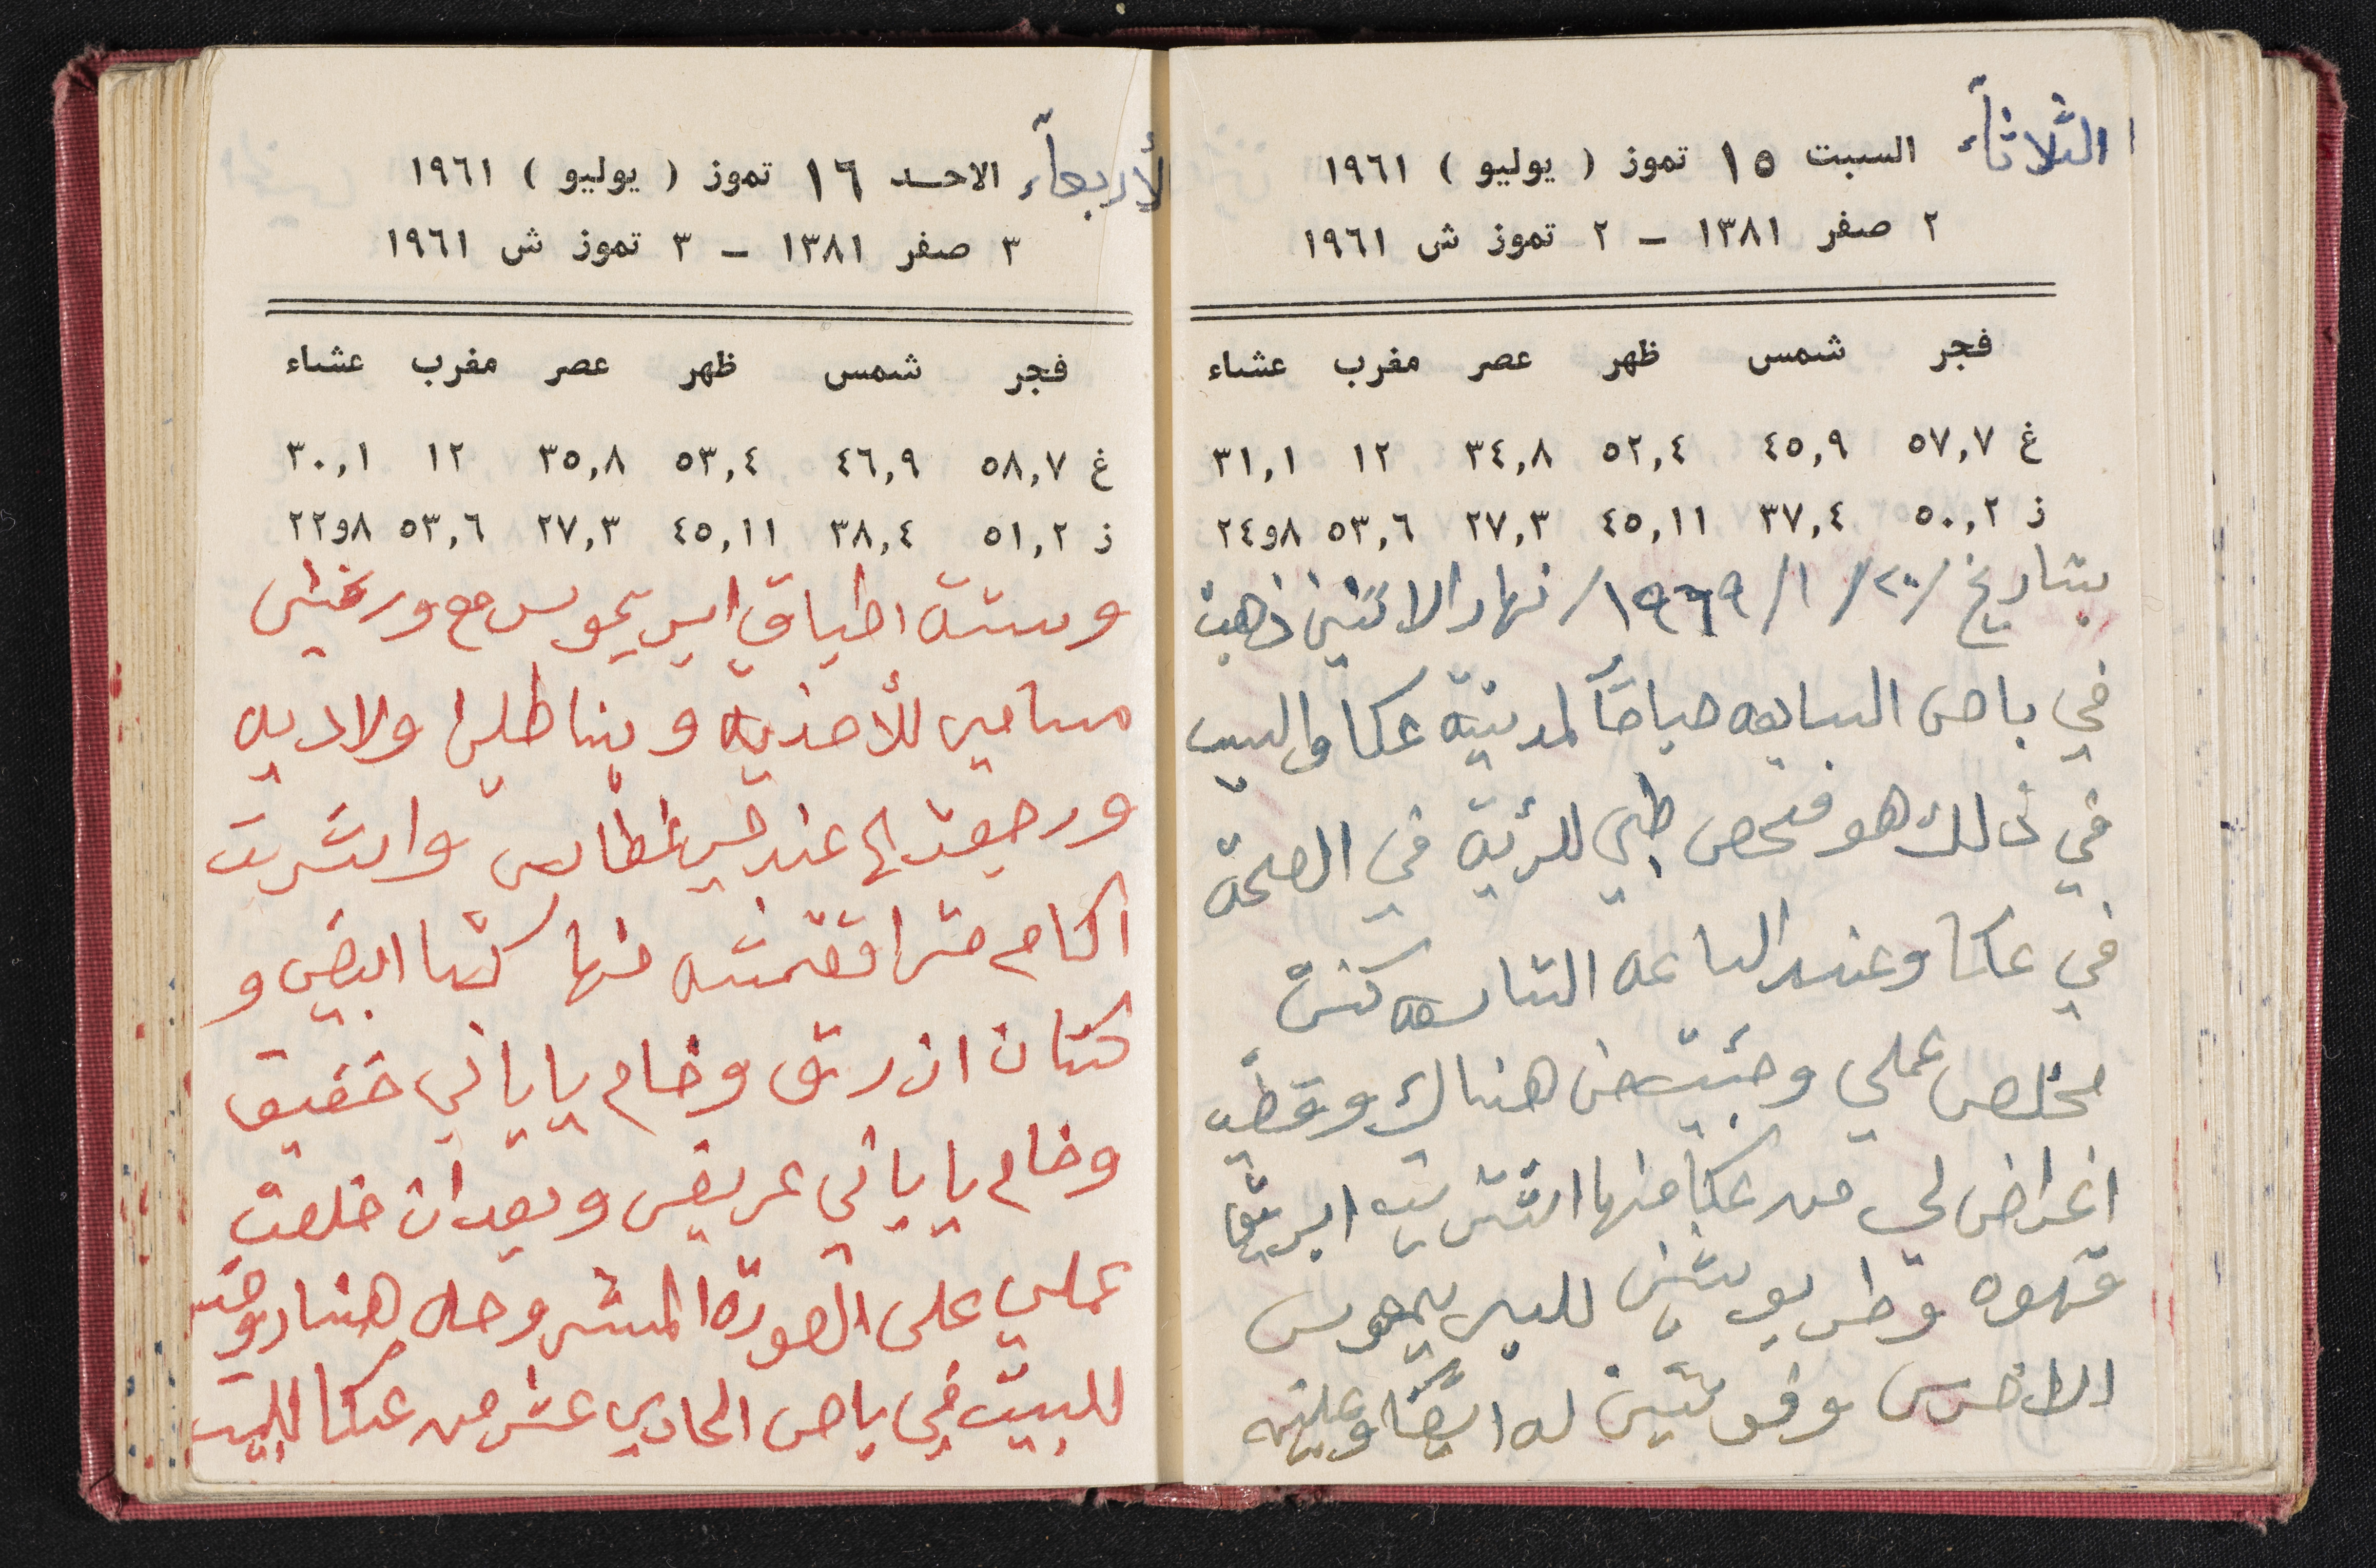 الثلاثآء
السبت ١٥ تموز ( يوليو ) ١٩٦١
٢ صفر ١٣٨١ – ٢ تموز ش ١٩٦١
فجر شمس ظهر عصر مغرب عشاء
غ ٥٧,٧ ٤٥,٩ ٥٢,٤ ٣٤,٨ ١٢ ٣١,١
ز ٥٠,٢ ٣٧,٤ ٤٥,١١ ٢٧,٣ ٥٣,٦ ٨و٢٤
بتاريخ /٢٠/ ١/ ١٩٦٩/ نهار الاثنين ذهبت
في باص السابعه صباحًا لمدينة عكا والسبب
في ذالك هو فحص طبي للرئية في الصحة
في عكا وعند الساعه التاسعه كنت
مخلص عملي وجئت من هناك وقضيت
اغراض لي من عكا منها اشتريت ابريق
قهوه وطربوشين للبريموس
الاخرس وفونتين له ايضًا
الأربعآء
الاحد ١٦ تموز ( يوليو ) ١٩٦١
٣ صفر ١٣٨١ – ٣ تموز ش ١٩٦١
فجر شمس ظهر عصر مغرب عشاء
غ ٥٨,٧ ٤٦,٩ ٥٣,٤ ٣٥,٨ ١٢ ٣٠,١
ز ٥١,٢ ٣٨,٤ ٤٥,١١ ٢٧,٣ ٥٣,٦ ٨و٢٢
وستة اطباق مع
مسامير للأحذيه و ولاديه
ورجعت الى عند غطاس واشتريت
اكام متر اقمشه منها كتا ابيض و
كتان ازرق وخام ياباني خفيف
وخام ياباني عريض وبعد ان خلصت
عملي على الصورة المشروحه
للبيت في باص الحادي عشر من عكا للبيت